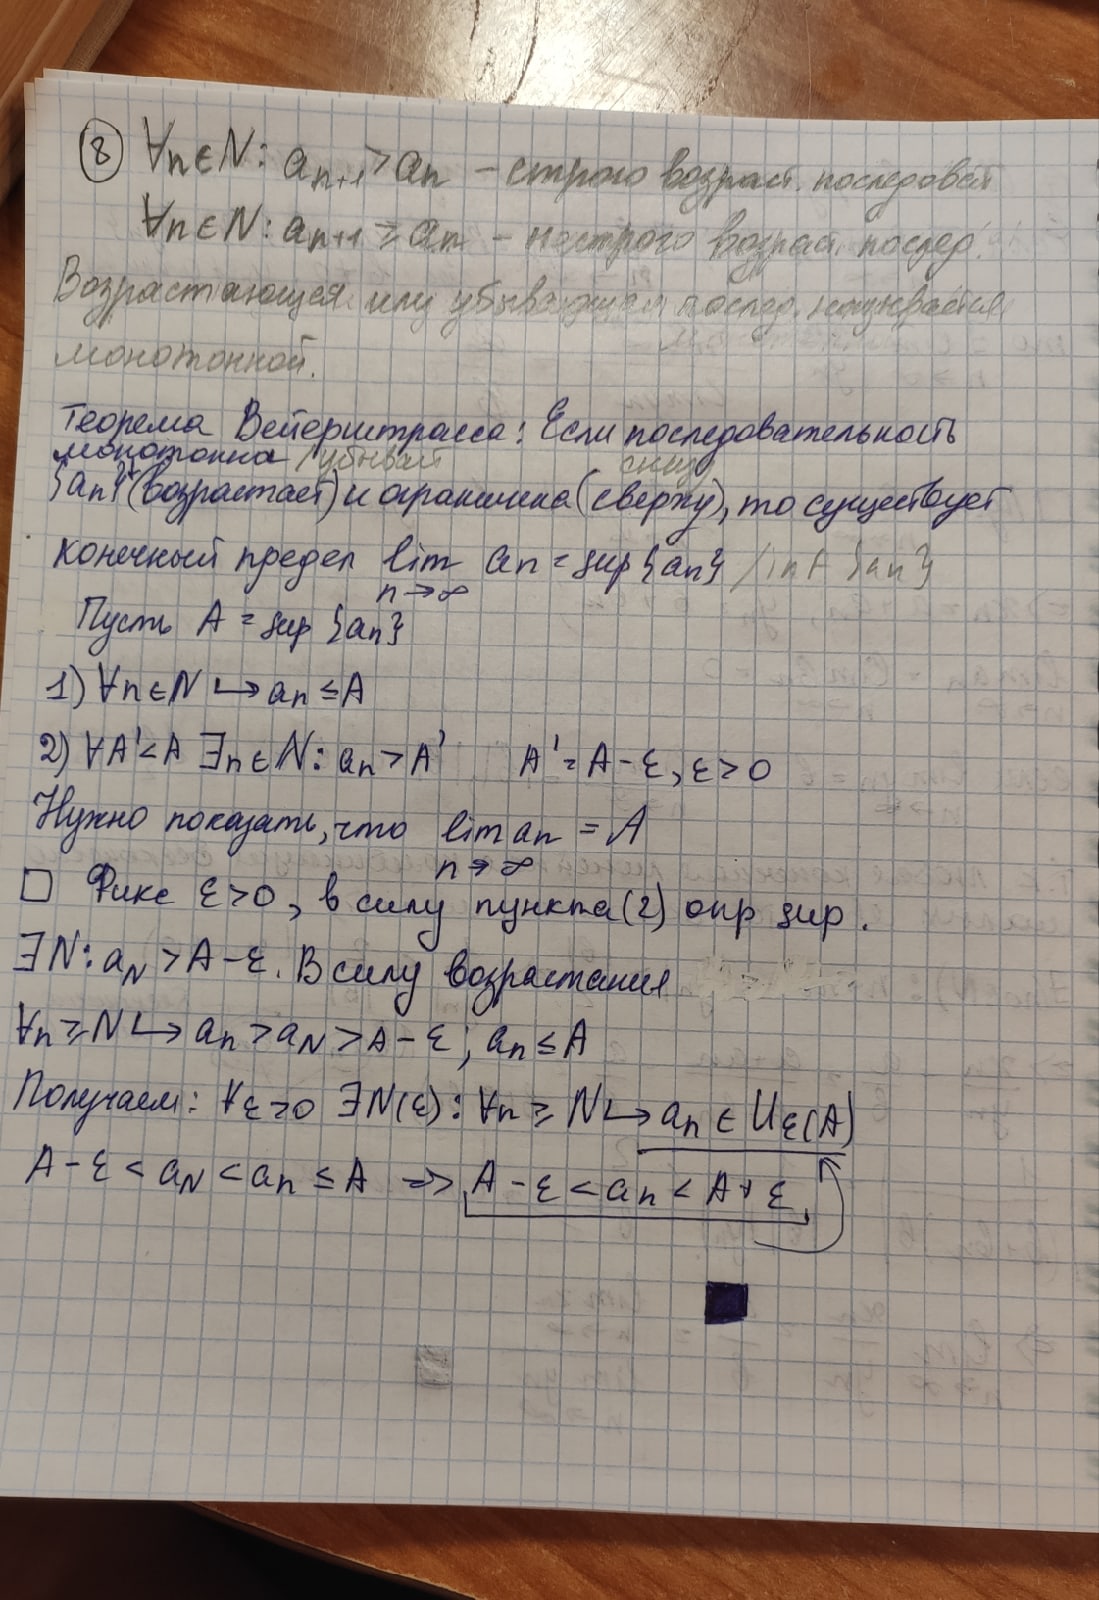 8 ∀n∈N: aₙ₊₁ > aₙ – строго возраст. последоват
∀n∈N: aₙ₊₁ ≥ aₙ – нестрого возраст. послед.
Возрастающая или убывающая послед. называется
монотонной.
Теорема Вейерштрасса: Если последовательность
монотонна / убывает снизу
{aₙ} (возрастает) и ограничена (сверху), то существует
конечный предел lim aₙ = sup {aₙ} / inf {aₙ}
n→∞
Пусть A = sup {aₙ}
1) ∀n∈N ↪ aₙ ≤ A
2) ∀A'<A ∃n∈N: aₙ > A' A' = A-ε, ε>0
Нужно показать, что lim aₙ = A
n→∞
□ Фикс ε>0, в силу пункта (2) опр sup.
∃N: a_N > A-ε. В силу возрастания
∀n ≥ N ↪ aₙ > a_N > A-ε; aₙ ≤ A
Получаем: ∀ε>0 ∃N(ε): ∀n ≥ N ↪ aₙ ∈ U_ε(A)
A-ε < a_N < aₙ ≤ A ⇒ A-ε < aₙ < A+ε